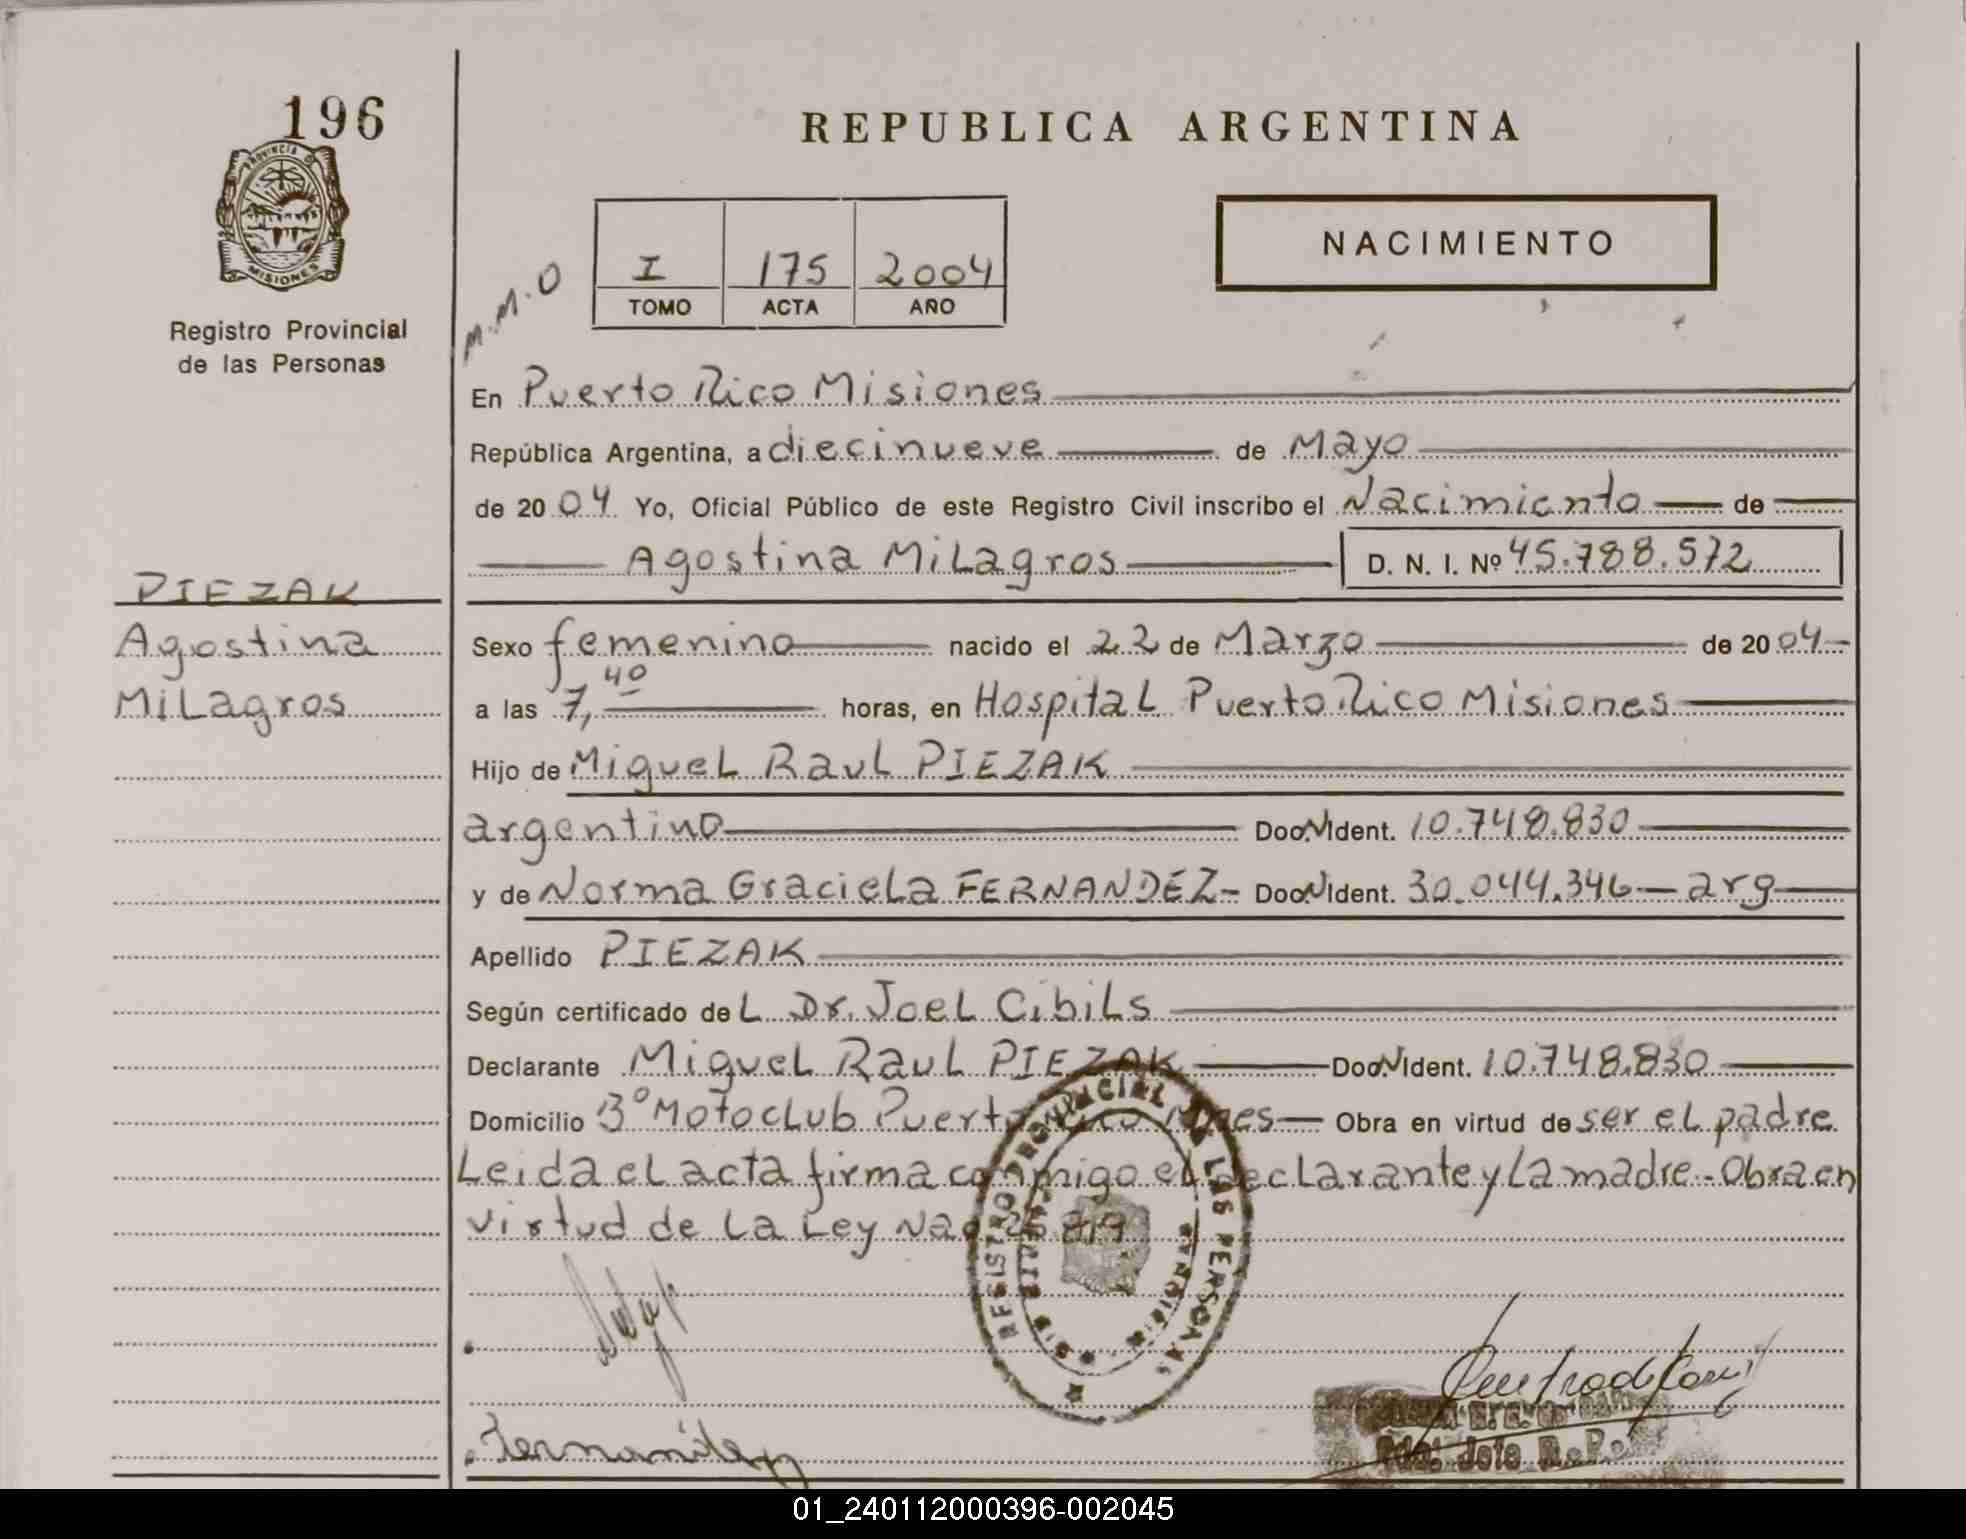 196
PROVINCIA DE
MISIONES
Registro Provincial
de las Personas
REPUBLICA ARGENTINA
NACIMIENTO
M.M.O
I 175 2004
TOMO ACTA AÑO
En Puerto Rico Misiones
República Argentina, a diecinueve de Mayo
de 2004 Yo, Oficial Público de este Registro Civil inscribo el Nacimiento de
Agostina Milagros D. N. I. Nº 45.788.572
PIEZAK
Agostina
Milagros
Sexo femenino nacido el 22 de Marzo de 2004
a las 7,40 horas, en Hospital Puerto Rico Misiones
Hijo de Miguel Raul PIEZAK
argentino Doc. N Ident. 10.748.830
y de Norma Graciela FERNANDEZ- Doc. N Ident. 30.044.346 arg
Apellido PIEZAK
Según certificado del Dr. Joel Cibils
Declarante Miguel Raul PIEZAK Doc. N Ident. 10.748.830
Domicilio Bº Motoclub Puerto Rico Mnes Obra en virtud de ser el padre
Leida el acta firma conmigo el declarante y la madre.- Obra en
virtud de la Ley Nac
REGISTRO PROVINCIAL DE LAS PERSONAS
MISIONES
Fernández
Jefe R.P.
01_240112000396-002045